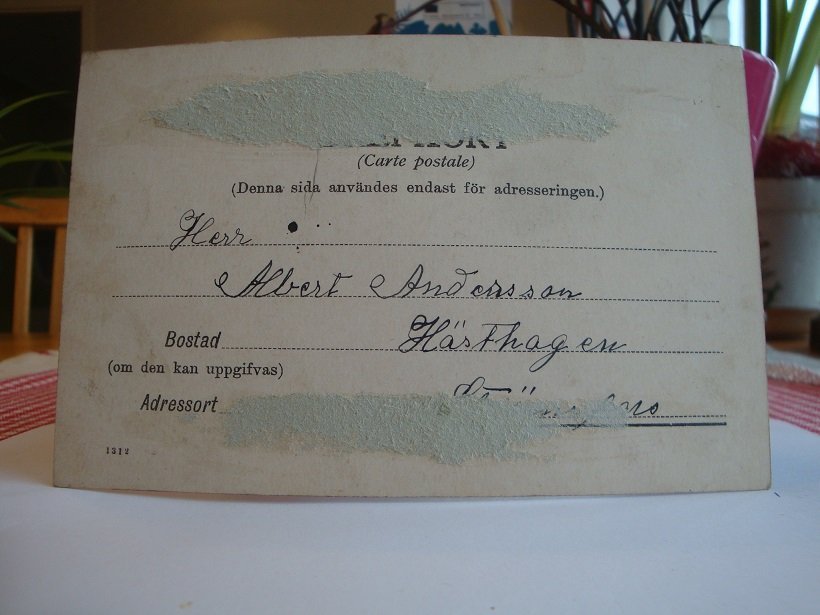 (Carte postale)
(Denna sida användes endast för adresseringen.)
Herr
Albert Andersson
Bostad Hästhagen
(om den kan uppgifvas)
Adressort
1312